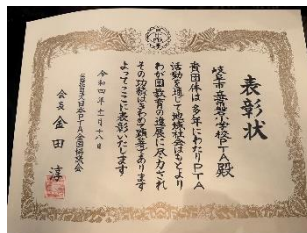 表彰状
岐阜市立常磐小学校PTA殿
貴団体は多年にわたりPTA
活動を通じて地域社会はもとより
わが国教育の進展に尽力され
その功績はまことに顕著であります
よってここに表彰いたします
令和四年十一月十八日
公益社団法人日本PTA全国協議会
会長 金田 淳